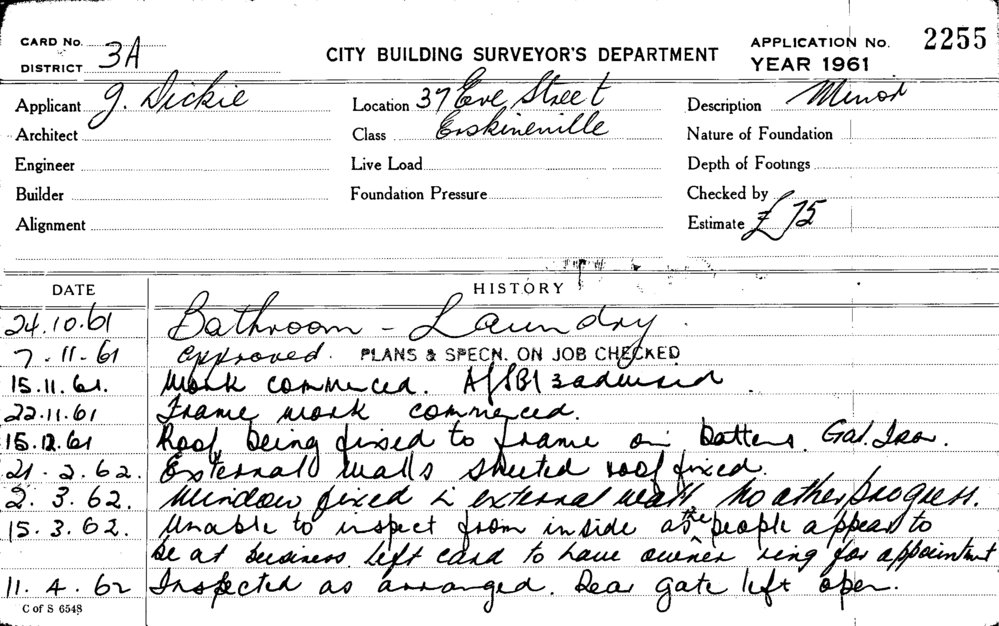 CARD No. 3A
DISTRICT
CITY BUILDING SURVEYOR'S DEPARTMENT
APPLICATION No. 2255
YEAR 1961
Applicant J. Dickie
Location 37 Eve Street
Description Minor
Architect
Class Erskineville
Nature of Foundation
Engineer
Live Load
Depth of Footings
Builder
Foundation Pressure
Checked by
Alignment
Estimate £75
DATE
HISTORY
24.10.61 Bathroom - Laundry.
7-11-61 Approved. PLANS & SPECN. ON JOB CHECKED
15.11.61. Work commenced.
22.11.61 Frame work commenced.
15.12.61 Roof being fixed to frame on battens Gal. Iron.
21.2.62. External walls sheeted roof fixed.
2.3.62. Window fixed in external wall No other progress.
15.3.62. Unable to inspect from inside as the people appear to
be at business. Left card to have owner ring for appointmt
11.4.62 Inspected as arranged. Rear gate left open.
C of S 6548